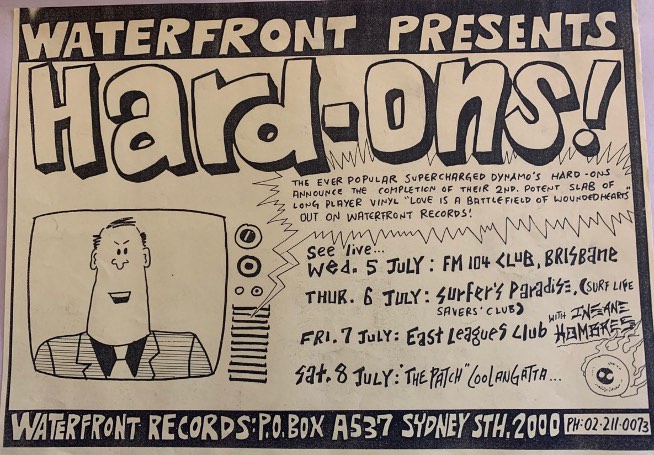 WATERFRONT PRESENTS
Hard-ons!
THE EVER POPULAR SUPERCHARGED DYNAMO'S HARD-ONS
ANNOUNCE THE COMPLETION OF THEIR 2ND. POTENT SLAB OF
LONG PLAYER VINYL "LOVE IS A BATTLEFIELD OF WOUNDED HEARTS"
OUT ON WATERFRONT RECORDS!
See live...
Wed. 5 JULY : FM 104 CLUB, BRISBANE
THUR. 6 JULY: SURFER'S PARADISE, (SURF LIFE
SAVERS' CLUB)
FRI. 7 JULY: East Leagues Club WITH INSANE
HOMBRES
Sat. 8 JULY: "THE PATCH" COOLANGATTA...
WATERFRONT RECORDS: P.O. BOX A537 SYDNEY STH. 2000 PH:02·211·0073